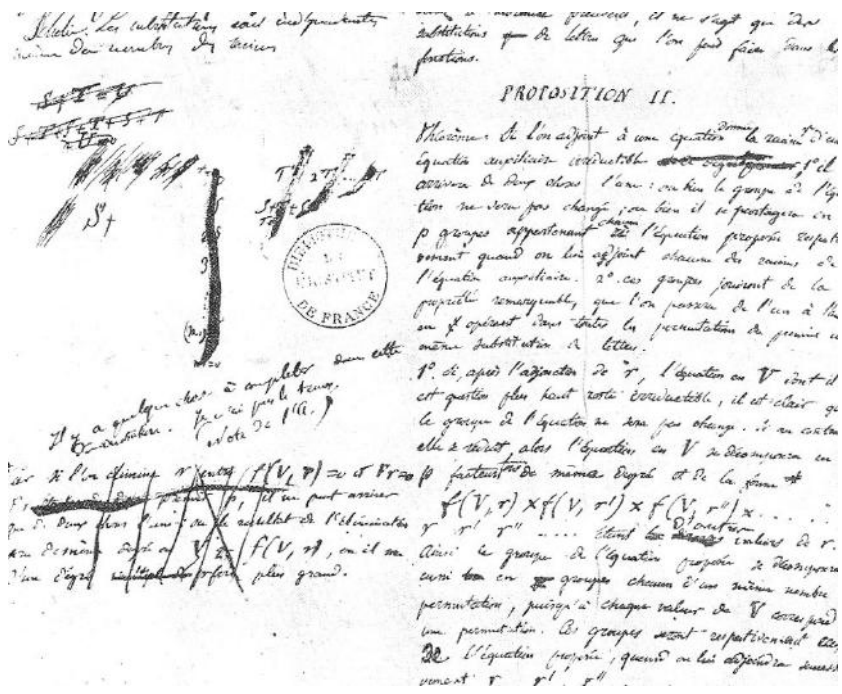 Scholie. Les substitutions sont indépendantes
même du nombre des racines
S+T=U
S+
T
2T
BIBLIOTHÈQUE
DE
L'INSTITUT
DE FRANCE
Il y a quelque chose à compléter dans cette
démonstration. Je n'ai pas le tems.
(Note de l'A.)
Car si l'on élimine r entre f(V, r) = 0 et Fr = 0
p, il ne peut arriver
que de deux choses l'une : ou le résultat de l'élimination
de même degré en V que f(V, r), ou il
d'un degré plus grand.
et ne s'agit que des
substitutions de lettres que l'on peut faire dans les
fonctions.
PROPOSITION II.
Théorème. Si l'on adjoint à une équation donnée la racine r d'une
équation auxiliaire irréductible 1° il
arrivera de deux choses l'une : ou bien le groupe de l'équa
tion ne sera pas changé ; ou bien il se partagera en
p groupes appartenant chacun à l'équation proposée respecti
vement quand on lui adjoint chacune des racines de
l'équation auxiliaire. 2° ces groupes jouiront de la
propriété remarquable, que l'on passera de l'un à l'autre
en opérant dans toutes les permutations du premier une
même substitution de lettres.
1°. Si, après l'adjonction de r, l'équation en V dont il
est question plus haut reste irréductible, il est clair que
le groupe de l'équation ne sera pas changé. Si au contraire
elle se réduit, alors l'équation en V se décomposera en
p facteurs tous de même degré et de la forme
f(V, r) × f(V, r') × f(V, r'') × . . . . .
r r' r'' . . . . étant d'autres valeurs de r.
Ainsi le groupe de l'équation proposée se décomposera
aussi en groupes chacun d'un même nombre
permutation, puisqu'à chaque valeur de V correspond
une permutation. Ces groupes seront respectivement ceux
de l'équation proposée, quand on lui adjoindra successi
vement r r' r''